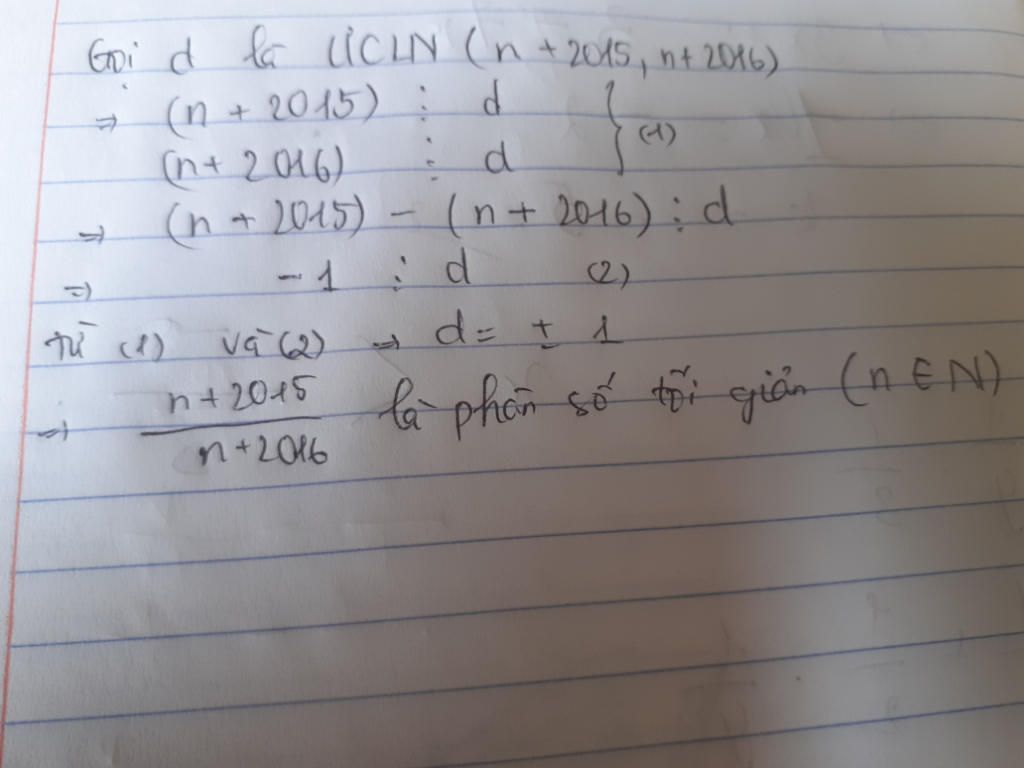 Gọi d là ƯCLN (n + 2015, n + 2016)
⇒ (n + 2015) ⋮ d
(n + 2016) ⋮ d } (1)
⇒ (n + 2015) - (n + 2016) ⋮ d
⇒ - 1 ⋮ d (2)
từ (1) và (2) ⇒ d = ± 1
⇒ n + 2015 / n + 2016 là phân số tối giản (n ∈ N)